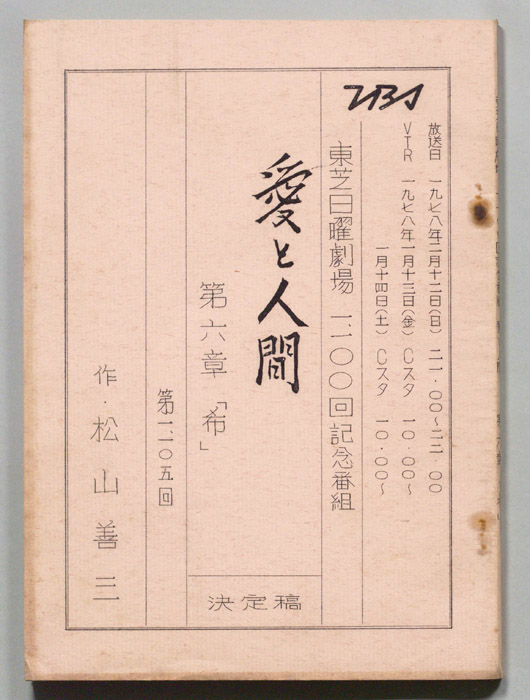 TBS
放送日 一九七八年二月十二日(日) 二一・〇〇〜二二・〇〇
VTR 一九七八年一月十三日(金) Cスタ 一〇・〇〇〜
一月十四日(土) Cスタ 一〇・〇〇〜
東芝日曜劇場 一、一〇〇回記念番組
愛と人間
第六章「希」
決定稿
第一、一〇五回
作・松山善三